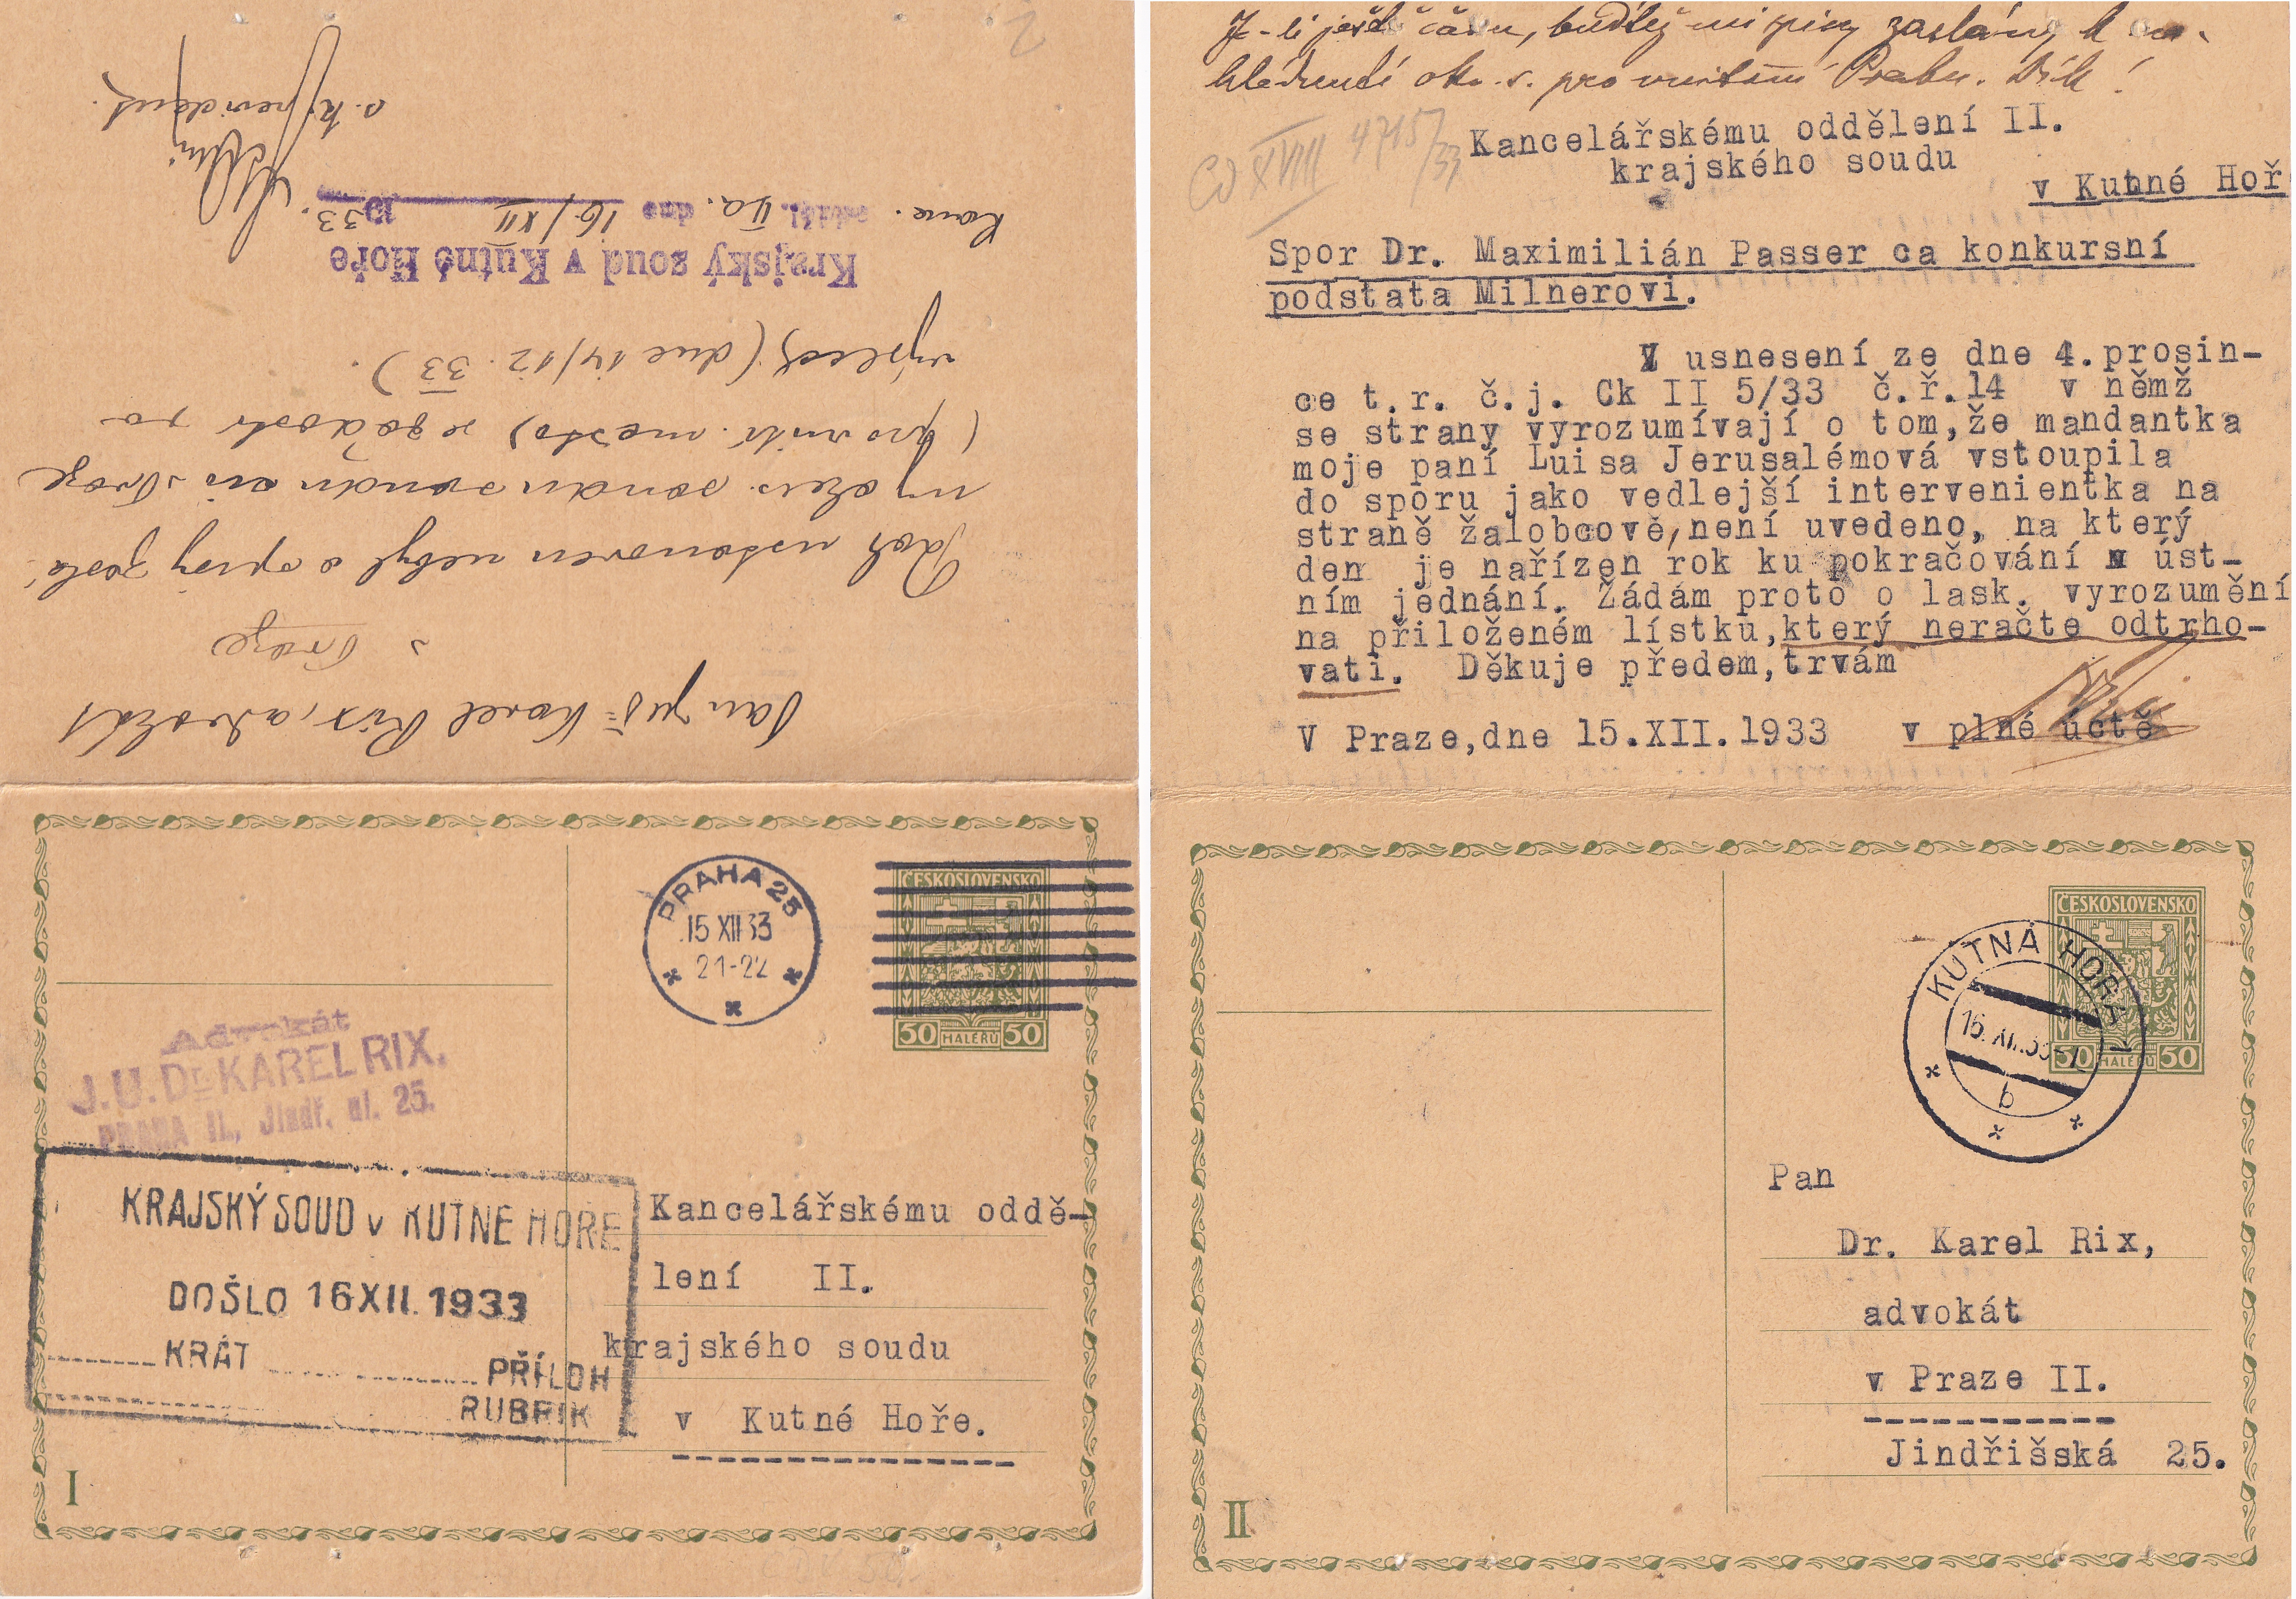 Pan JUDr Karel Rix, advokát
v Praze
Rok ustanoven nebyl a spisy zaslá-
ny okres. soudu civ. v Praze
(pro vnitř. město) se žádostí za
výslech (dne 14/12. 33).
Krajský soud v Kutné Hoře
Kanc. odděl. IIa. dne 16/XII 1933.
Je-li ještě času, buďtež mi spisy zaslány k na-
hlédnutí okr. s. pro vnitřní Prahu. Dík!
4715/33
Kancelářskému oddělení II.
krajského soudu
v Kutné Hoř
Spor Dr. Maximilián Passer ca konkursní
podstata Milnerovi.
V usnesení ze dne 4.prosin-
ce t.r. č.j. Ck II 5/33 č.ř.14 v němž
se strany vyrozumívají o tom,že mandantka
moje paní Luisa Jerusalémová vstoupila
do sporu jako vedlejší intervenientka na
straně žalobcově,není uvedeno, na který
den je nařízen rok ku pokračování v úst-
ním jednání. Žádám proto o lask. vyrozumění
na přiloženém lístku,který neračte odtrho-
vati. Děkuje předem,trvám
V Praze,dne 15.XII.1933 v plné úctě
PRAHA 25
15 XII 33
21-22
ČESKOSLOVENSKO
50 HALÉŘŮ 50
Advokát
J.U.Dr. KAREL RIX,
PRAHA II., Jindř. ul. 25.
KRAJSKÝ SOUD v KUTNÉ HOŘE
DOŠLO 16 XII. 1933
KRÁT PŘÍLOH
RUBRIK
Kancelářskému oddě-
lení II.
krajského soudu
v Kutné Hoře.
I
ČESKOSLOVENSKO
50 HALÉŘŮ 50
KUTNÁ HORA 1
16.XII.33
b
Pan
Dr. Karel Rix,
advokát
v Praze II.
Jindřišská 25.
II